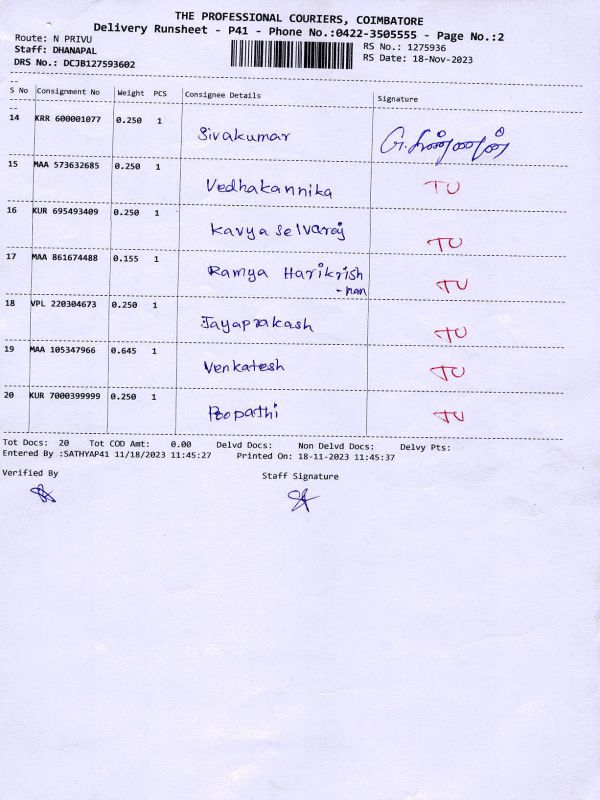 THE PROFESSIONAL COURIERS, COIMBATORE
Delivery Runsheet - P41 - Phone No.:0422-3505555 - Page No.:2
Route: N PRIVU
RS No.: 1275936
Staff: DHANAPAL
RS Date: 18-Nov-2023
DRS No.: DCJB127593602
S No Consignment No Weight PCS Consignee Details Signature
14 KRR 600001077 0.250 1 Sivakumar
15 MAA 573632685 0.250 1 Vedhakannika TU
16 KUR 695493409 0.250 1 Kavya Selvaraj TU
17 MAA 861674488 0.155 1 Ramya Harikrish TU
-nan
18 VPL 220304673 0.250 1 Jayaprakash TU
19 MAA 105347966 0.645 1 Venkatesh TU
20 KUR 7000399999 0.250 1 Poopathi TU
Tot Docs: 20 Tot COD Amt: 0.00 Delvd Docs: Non Delvd Docs: Delvy Pts:
Entered By :SATHYAP41 11/18/2023 11:45:27 Printed On: 18-11-2023 11:45:37
Verified By Staff Signature